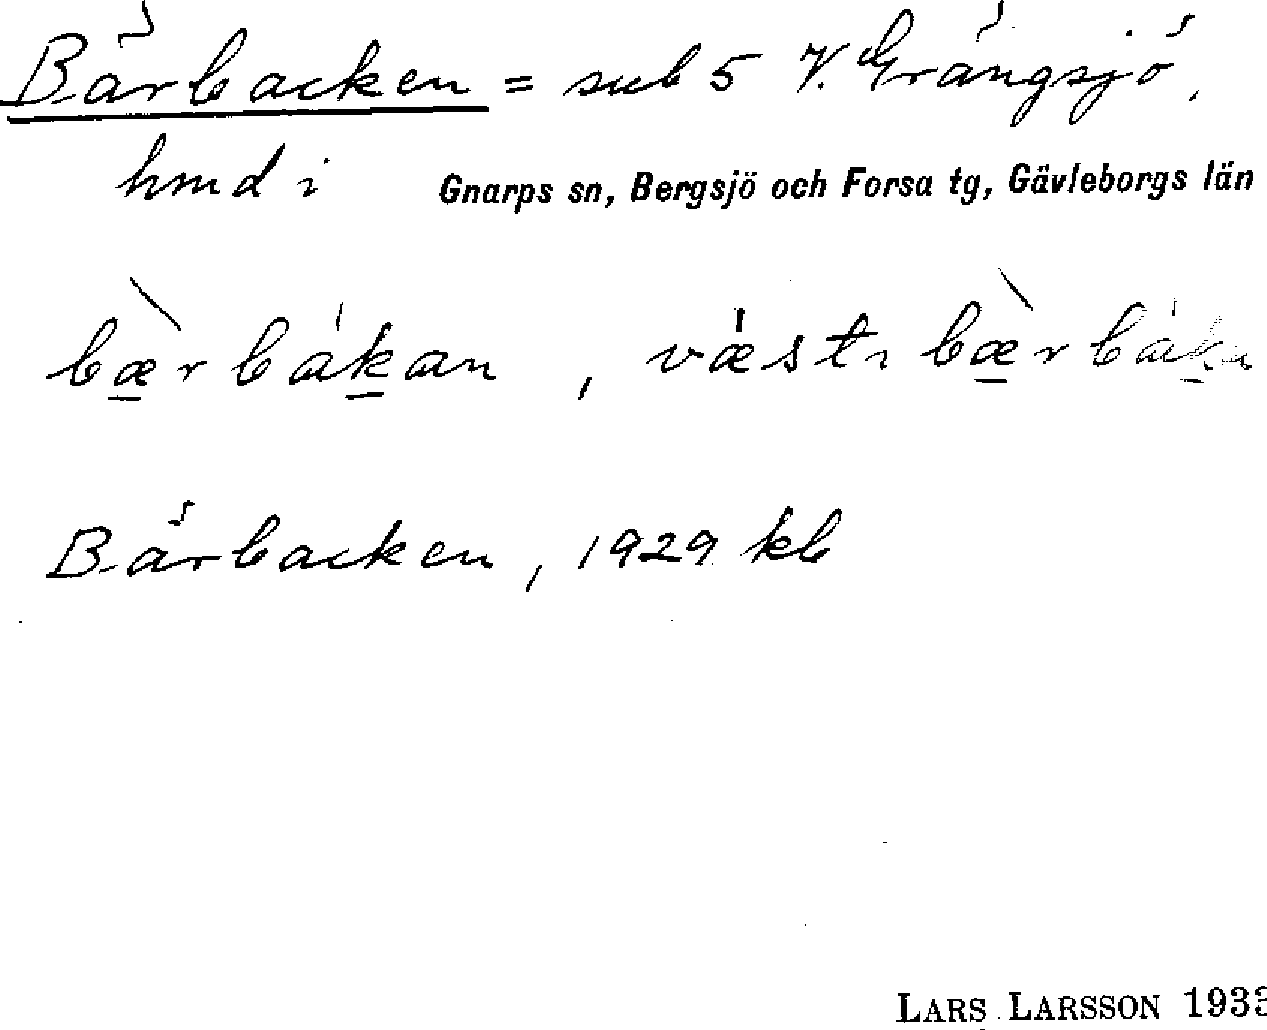 Bärbacken = sub 5 V. Grängsjö,
hmd i Gnarps sn, Bergsjö och Forsa tg, Gävleborgs län
bæ̀rbákan, vǽstr bæ̀rbák
Bärbacken, 1929 kb
LARS LARSSON 1933